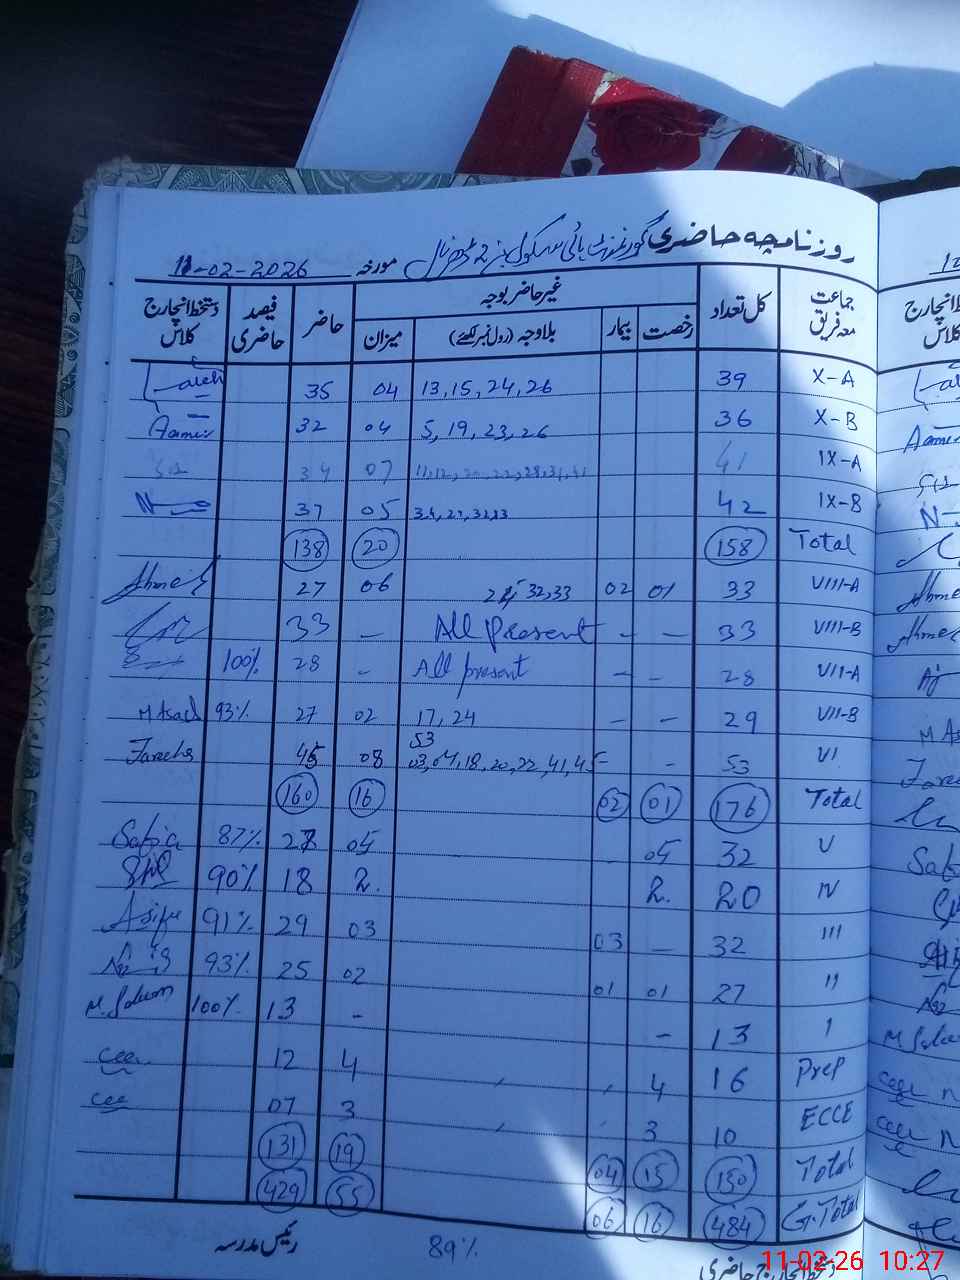 روزنامچہ حاضری گورنمنٹ ہائی سکول نمبر 2
مورخہ 11-02-2026
جماعت معہ فریق کل تعداد غیر حاضر بوجہ حاضر فیصد حاضری دستخط انچارج کلاس
رخصت بیمار بلاوجہ (رول نمبر لکھئے) میزان
X-A 39 13, 15, 24, 26 04 35
X-B 36 5, 19, 23, 26 04 32 Aamir
IX-A 41 07 34
IX-B 42 05 37
Total 158 20 138
VIII-A 33 01 02 32, 33 06 27 Ahmed
VIII-B 33 – – All Present – 33
VII-A 28 – – All present – 28 100%
VII-B 29 – – 17, 24 02 27 93% M Asad
VI 53 - 53 03, 04, 18, 20, 22, 41, 45 08 45
Total 176 01 02 16 160
V 32 05 05 27 87% Safia
IV 20 2. 2. 18 90%
III 32 – 03 03 29 91%
II 27 01 01 02 25 93%
I 13 – - 13 100%
Prep 16 4 4 12
ECCE 10 3 3 07
Total 150 15 04 19 131
G.Total 484 16 06 55 429
89%
رئیس مدرسہ
11-02-26 10:27